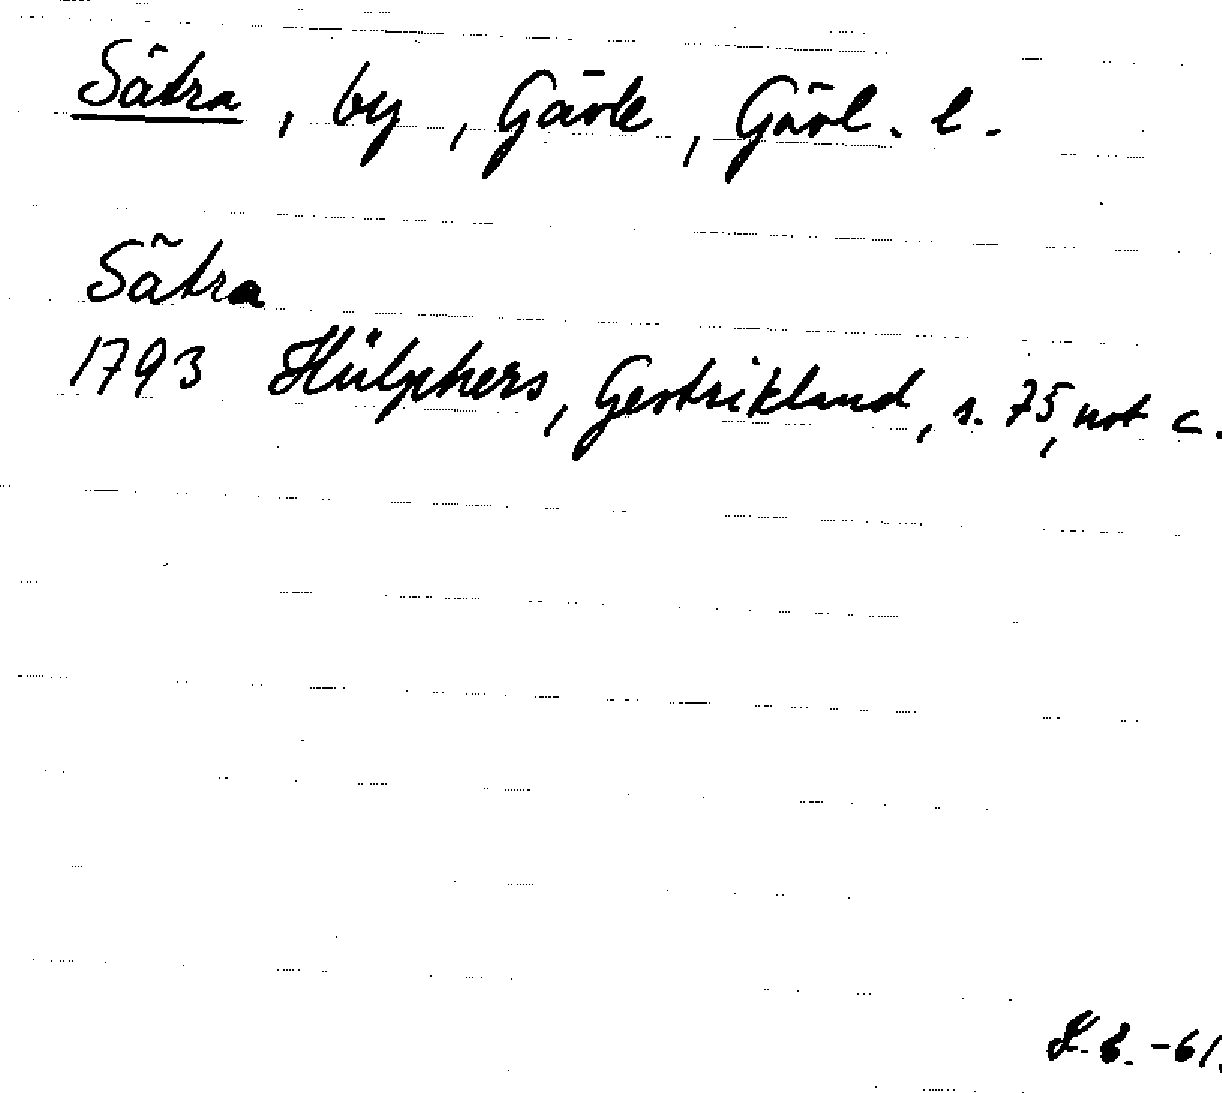 Sätra, by, Gävle, Gävl. l.
Sätra
1793 Hülphers, Gestrikland, s. 75, not c.
-61.